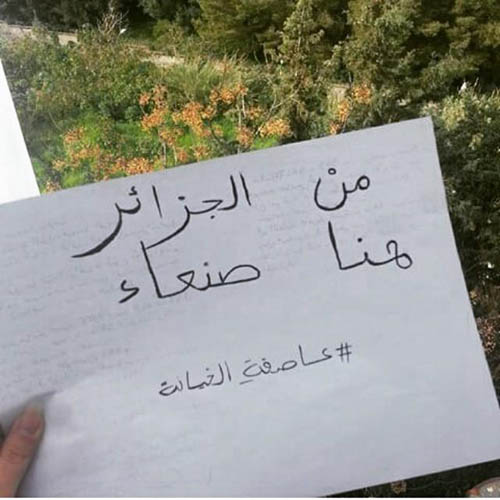 من الجزائر
هنا صنعاء
#عاصفة الخيانة